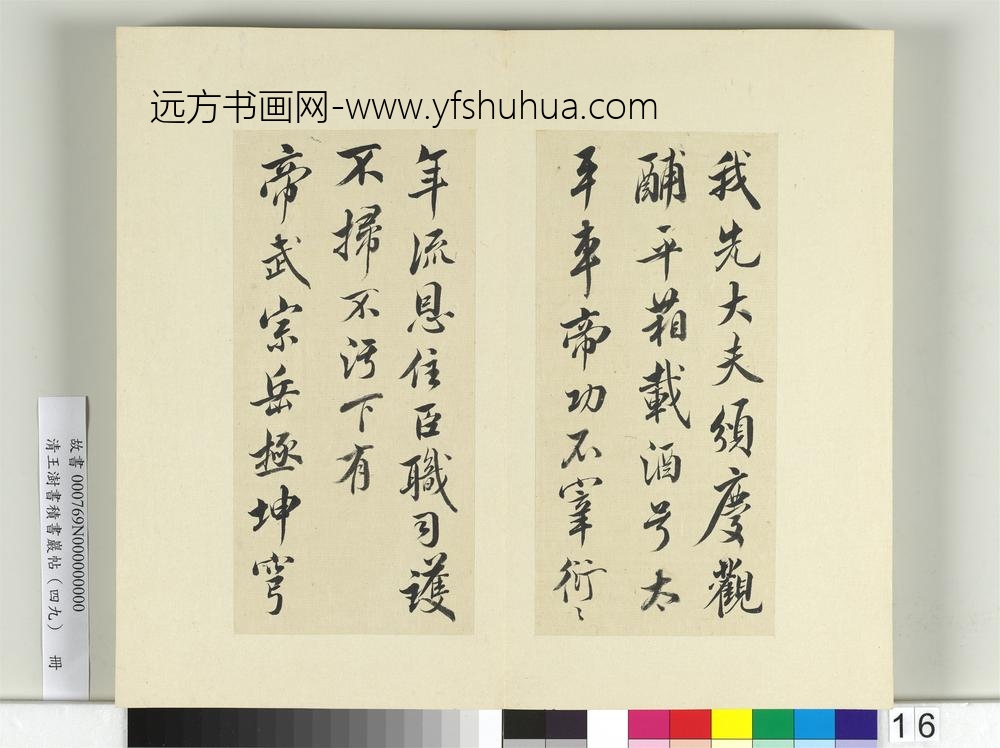 远方书画网-www.yfshuhua.com
我先大夫須慶觀
酺平藉載酒号太
平車帝功不宰衍〻
年流恩住臣職司護
不掃不污下有
帝武宗岳極坤穹
故書 000769N000000000
清王澍書積書巖帖（四九） 冊
16